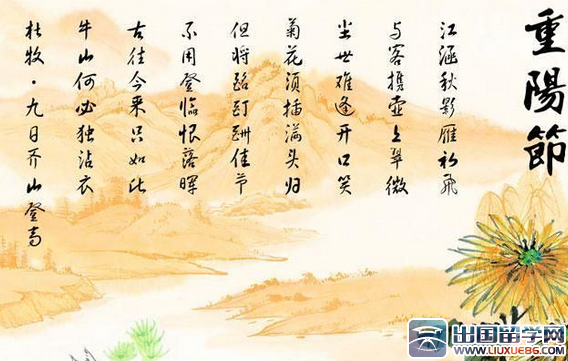 重陽節
江涵秋影雁初飞
与客携壶上翠微
尘世难逢开口笑
菊花须插满头归
但将酩酊酬佳节
不用登临恨落晖
古往今来只如此
牛山何必独沾衣
杜牧·九日齐山登高
出国留学网
WWW.LIUXUE86.COM